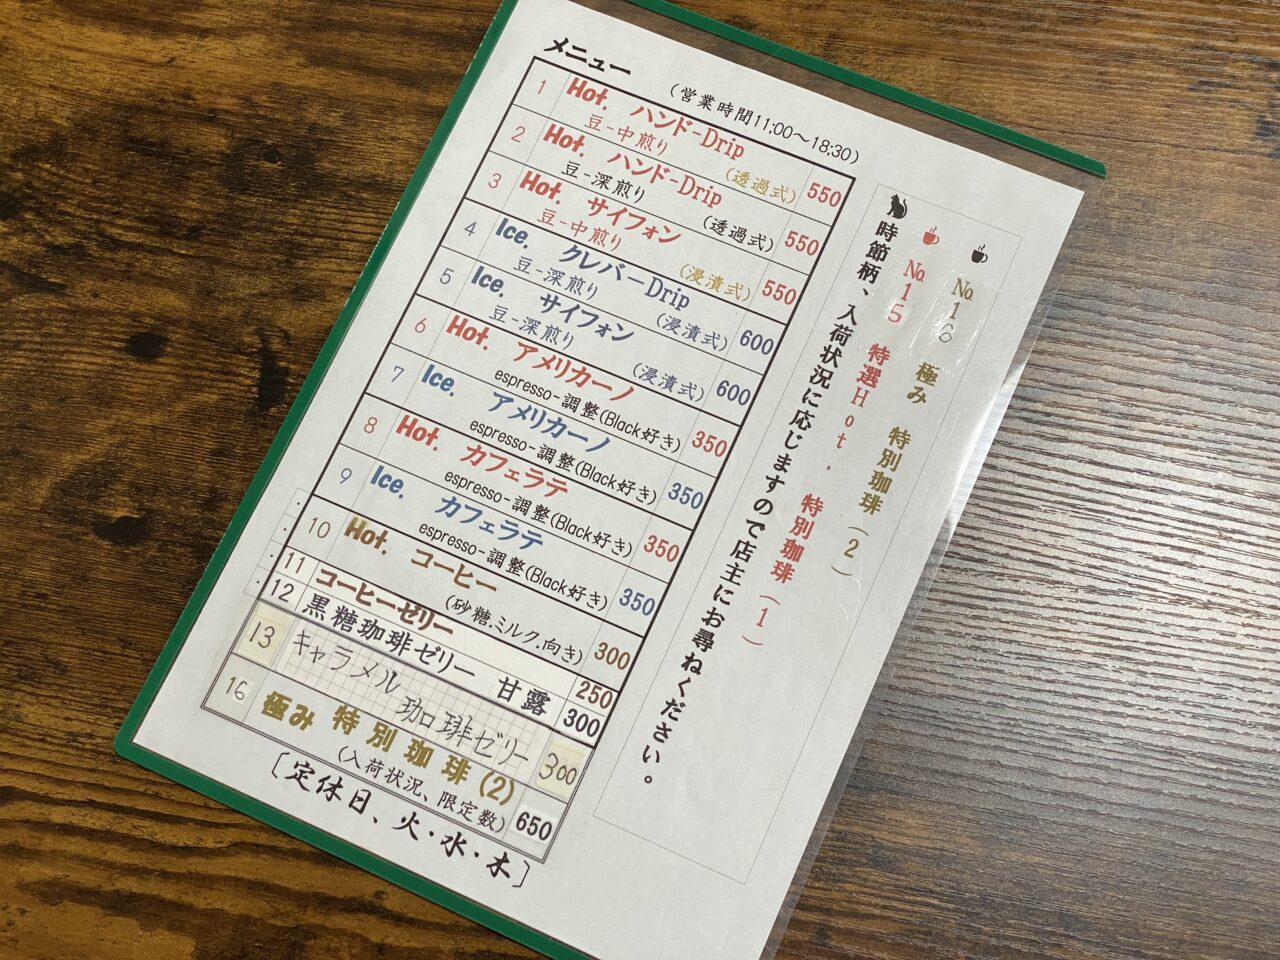 メニュー
(営業時間11;00～18;30)
1 Hot. ハンド-Drip
豆-中煎り (透過式) 550
2 Hot. ハンド-Drip
豆-深煎り (透過式) 550
3 Hot. サイフォン
豆-中煎り (浸漬式) 550
4 Ice. クレバーDrip
豆-深煎り (浸漬式) 600
5 Ice. サイフォン
豆-深煎り (浸漬式) 600
6 Hot. アメリカーノ
espresso-調整(Black好き) 350
7 Ice. アメリカーノ
espresso-調整(Black好き) 350
8 Hot. カフェラテ
espresso-調整(Black好き) 350
9 Ice. カフェラテ
espresso-調整(Black好き) 350
10 Hot. コーヒー
(砂糖.ミルク.向き) 300
11 コーヒーゼリー 250
12 黒糖珈琲ゼリー 甘露 300
13 キャラメル珈琲ゼリー 300
16 極み 特別珈琲(2)
(入荷状況、限定数) 650
[定休日、火・水・木]
№16 極み 特別珈琲(2)
№15 特選Hot. 特別珈琲(1)
時節柄、入荷状況に応じますので店主にお尋ねください。